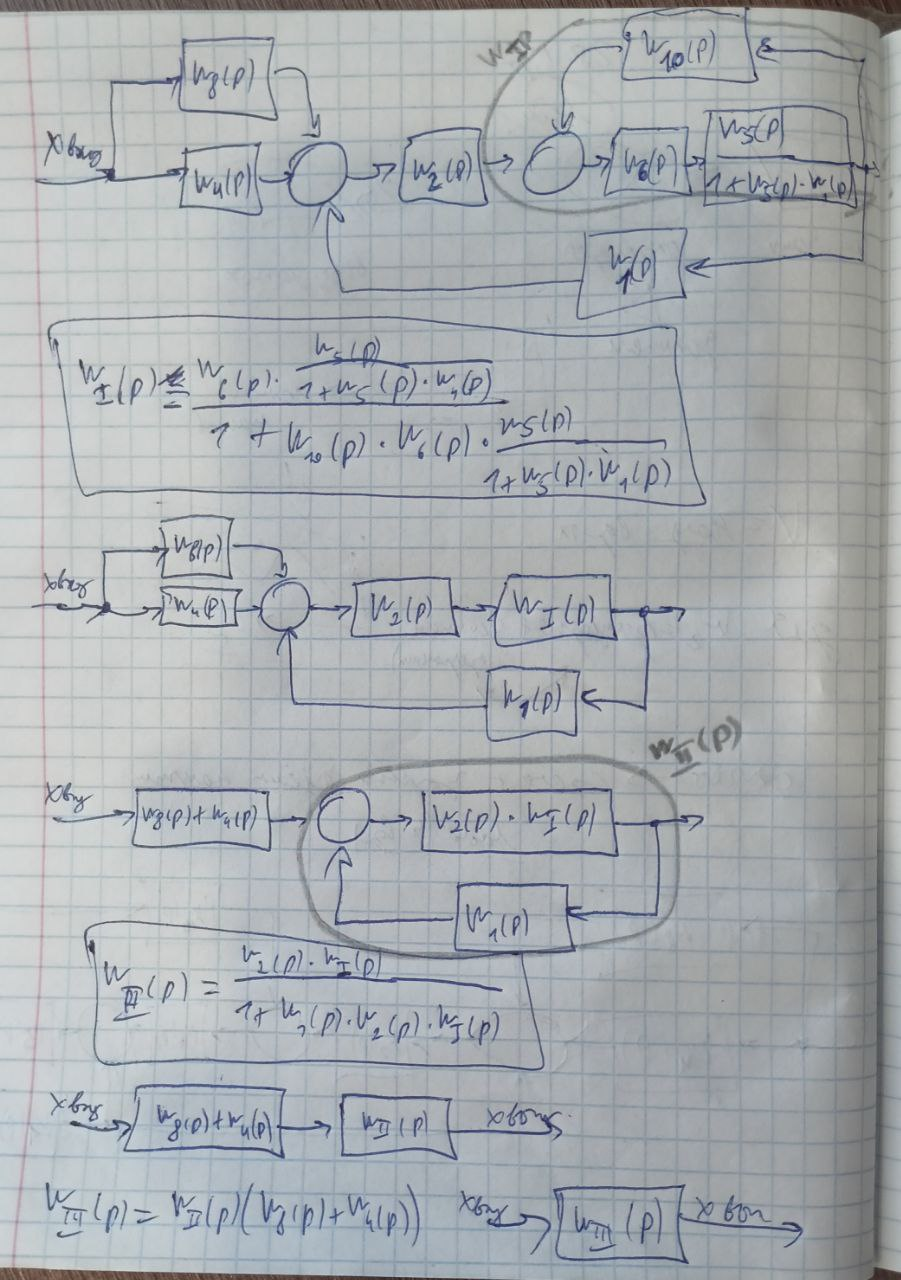 W_I(p)
W_10(p)
W_8(p)
Xвход
W_4(p)
W_2(p)
W_6(p)
W_5(p)
1+W_5(p)·W_1(p)
W_1(p)
W_I(p) = W_6(p) · W_5(p) / 1+W_5(p)·W_1(p)
1 + W_10(p) · W_6(p) · W_5(p) / 1+W_5(p)·W_1(p)
W_8(p)
Xвх
W_4(p)
W_2(p)
W_I(p)
W_1(p)
W_II(p)
Xвх
W_8(p)+W_4(p)
W_2(p) · W_I(p)
W_1(p)
W_II(p) = W_2(p) · W_I(p)
1+W_1(p)·W_2(p)·W_I(p)
Xвх
W_8(p)+W_4(p)
W_II(p)
Xвых
W_III(p) = W_II(p)(W_8(p)+W_4(p))
Xвх
W_III(p)
Xвых